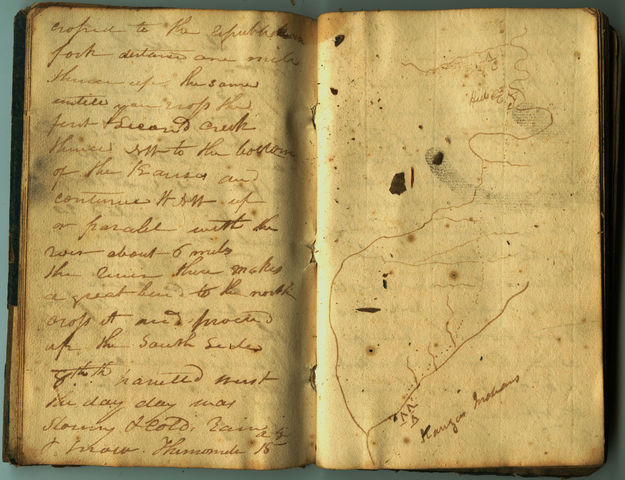 crossed to the republican
fork distance one mile
thence up the same
untill you cross the
first & second creek
thence NW to the bottom
of the Kansas and
continue up
or paralel with the
river about 6 mils
the river there makes
a great bend to the north
cross it and proceed
up the South Side
8th travelled most
the day day was
& cold, Rain
& snow. Thermometer 15
Kanzas Indians